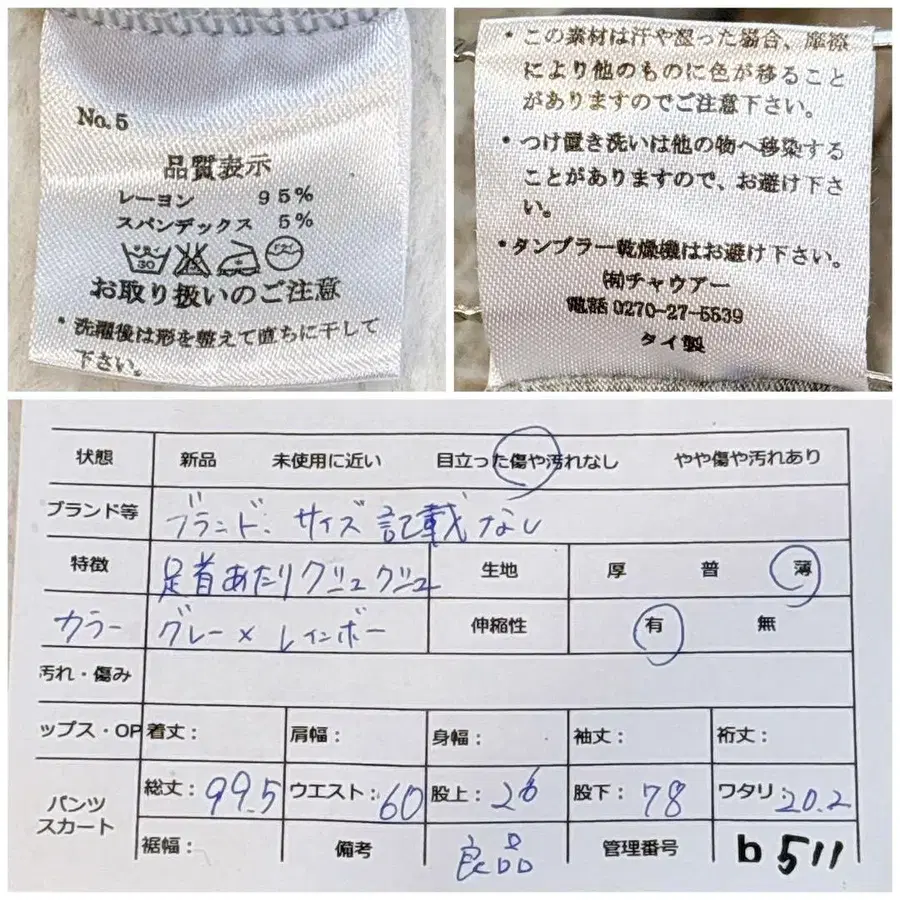 No. 5
品質表示
レーヨン 95%
スパンデックス 5%
お取り扱いのご注意
・洗濯後は形を整えて直ちに干して
下さい。
・この素材は汗や湿った場合、摩擦
により他のものに色が移ること
がありますのでご注意下さい。
・つけ置き洗いは他の物へ移染する
ことがありますので、お避け下さ
い。
・タンブラー乾燥機はお避け下さい。
㈲チャウアー
電話 0270-27-5539
タイ製
状態 新品 未使用に近い 目立った傷や汚れなし やや傷や汚れあり
ブランド等 ブランド、サイズ記載なし
特徴 足首あたりクシュクシュ 生地 厚 普 薄
カラー グレー×レインボー 伸縮性 有 無
汚れ・傷み
ップス・OP 着丈: 肩幅: 身幅: 袖丈: 裄丈:
パンツ
スカート
総丈: 99.5 ウエスト: 60 股上: 26 股下: 78 ワタリ: 20.2
裾幅: 備考 良品 管理番号 b511